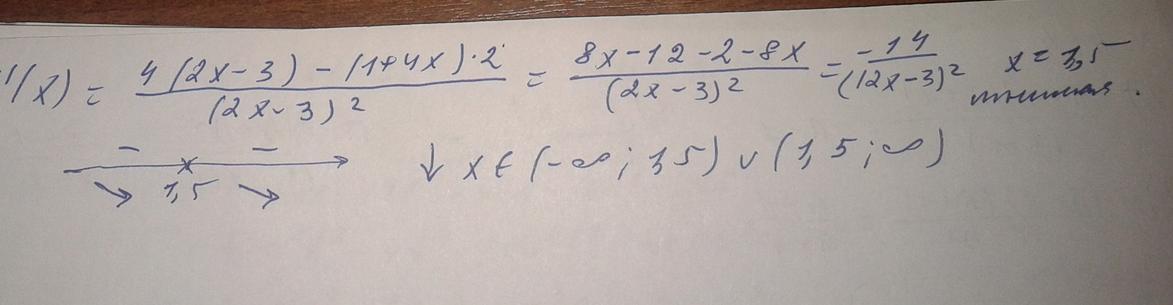 '(x) = \frac{4(2x-3) - (1+4x)·2}{(2x-3)^2} = \frac{8x-12-2-8x}{(2x-3)^2} = \frac{-14}{(2x-3)^2} x = 1,5
- -
1,5
↓ x ∈ (-∞; 1,5) ∪ (1,5; ∞)